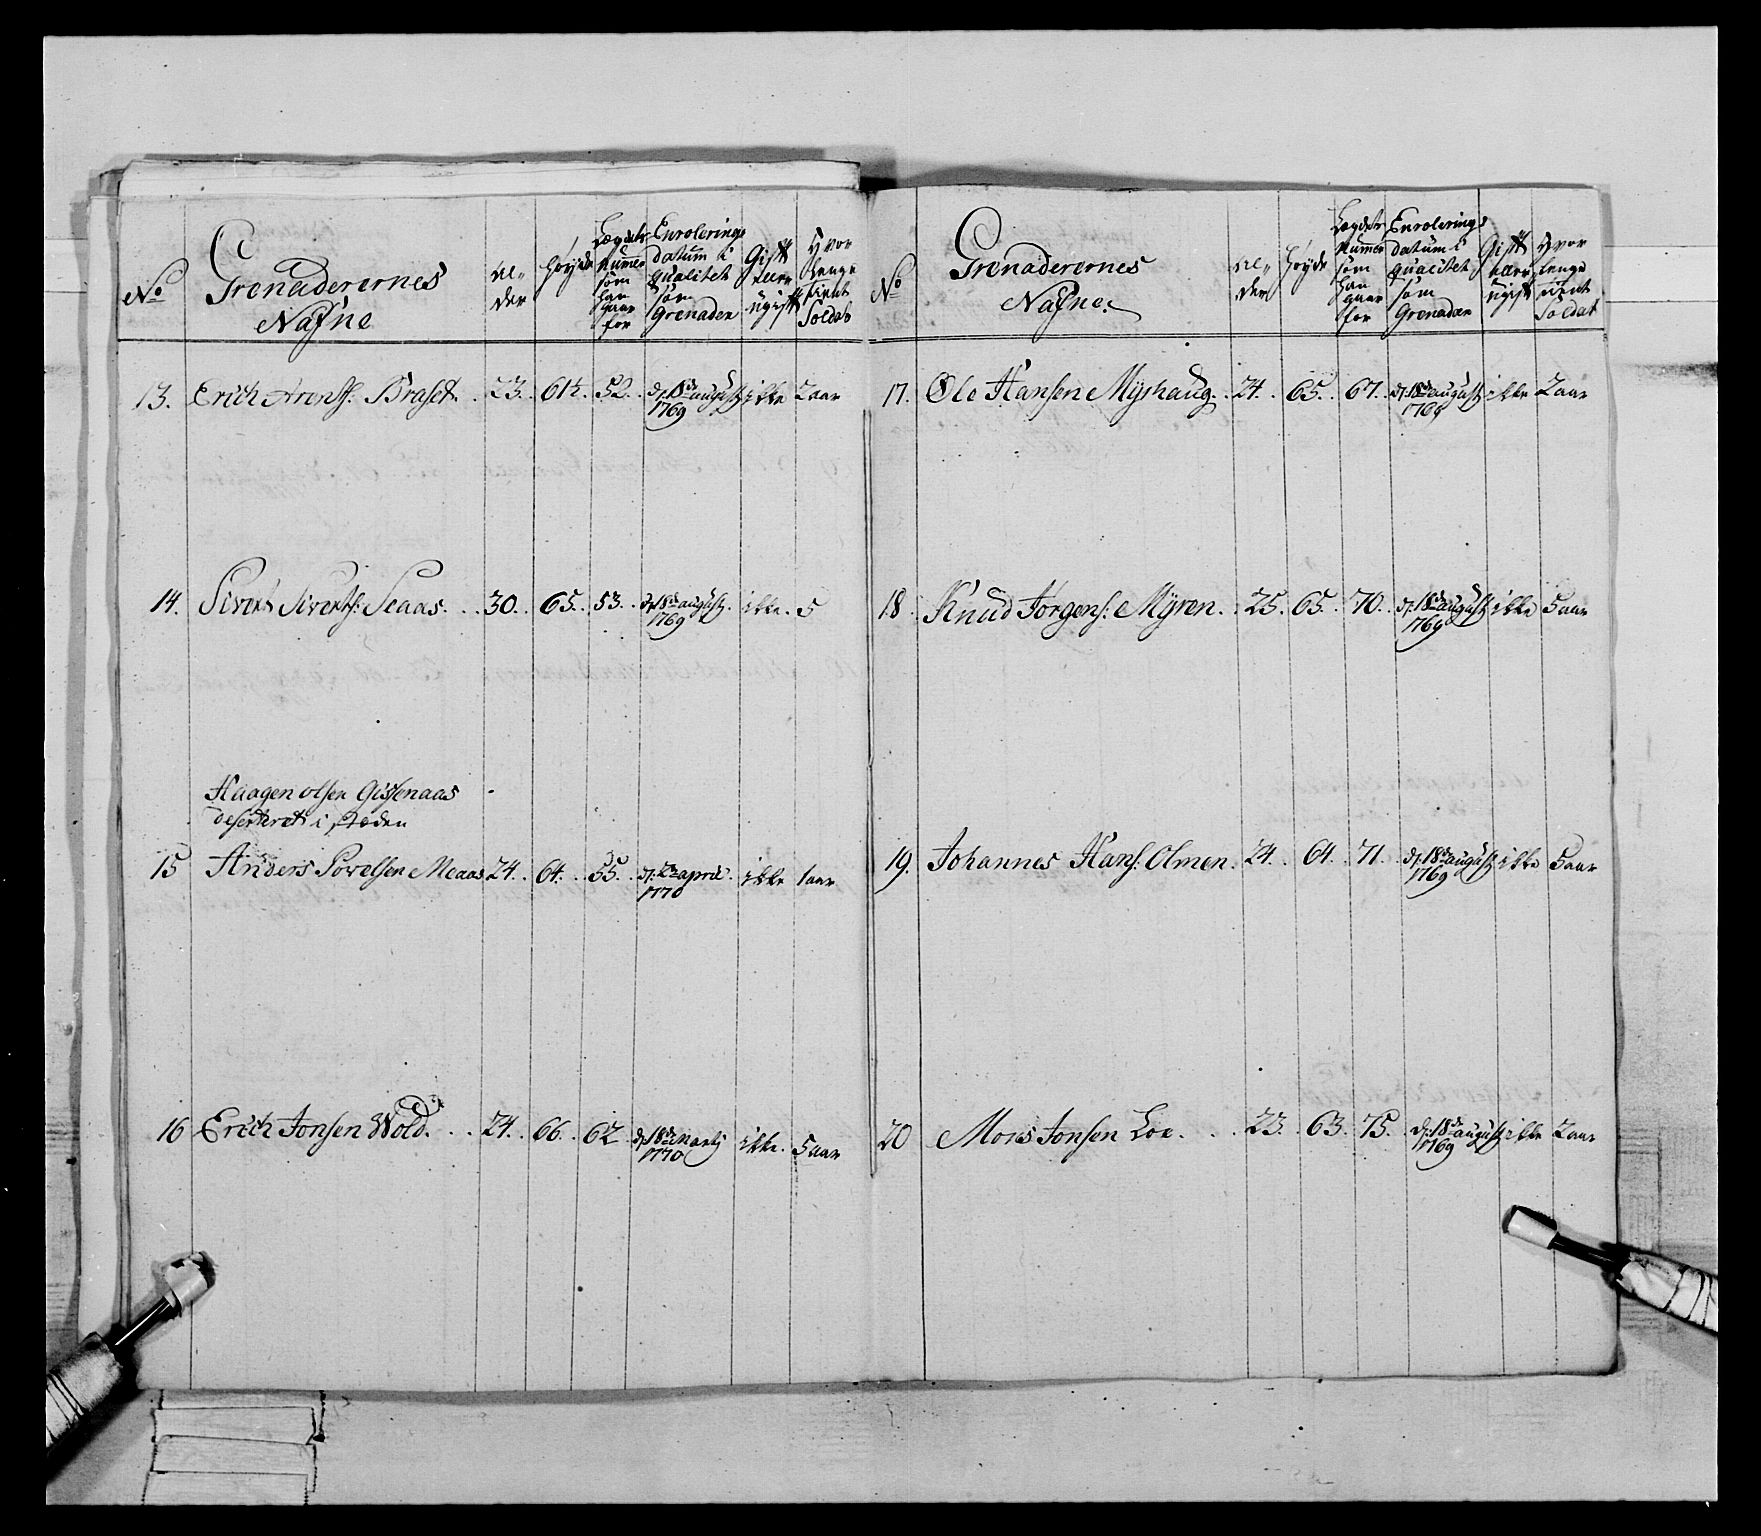 No
Grenaderernes
Nafne
Al-
der
Høyde
Lægdets
Numer
som
han
gaar
for
Enrolerings
datum i
qualitet
som
Grenader
Gift
eller
ugift
Hvor
lenge
tient
Soldat
13. Erich Arents: Braset. 23. 61½ 52. d: 18de august ikke 2 aar
1769
14. Sivert Siverts: Seaas. 30. 65. 53. d: 18de august. ikke. 5
1769
Haagen olsen Gissenaas
deserteret i
15 Anders Povelsen Meaas 24. 64. 55. d: april ikke 1 aar
1770
16 Erich Jonsen Wold. 24. 66. 62. d: 18de Martj ikke. 5 aar
1770
No
Grenaderernes
Nafne.
Al-
der
Høyde
Lægdets
Numer
som
han
gaar
for
Enrolerings
datum i
qualitet
som
Grenader
Gift
eller
ugift
Hvor
lenge
tient
Soldat
17. Ole Hansen Myrhaug. 24. 65. 67. d: 18de august ikke 2 aar
1769
18. Knud Jorgens: Myren. 25. 65. 70. d: 18de august ikke 5 aar
1769
19. Johannes Hans: Olmen. 24. 64. 71. d: 18de august ikke 5 aar
1769
20 Mons Jonsen Loe. 23. 63. 75. d: 18de august ikke 2 aar
1769